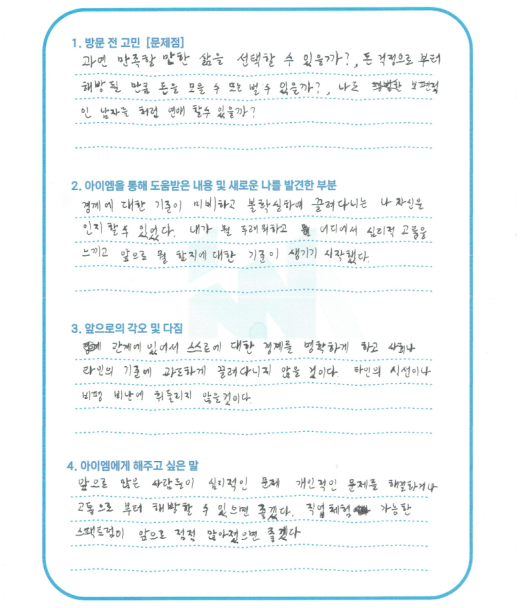 1. 방문 전 고민 [문제점]
과연 만족할 만한 삶을 선택할 수 있을까?, 돈 걱정으로 부터
해방될 만큼 돈을 모을 수 또는 벌 수 있을까?, 나도 보편적
인 남자들 처럼 연애 할수 있을까?
2. 아이엠을 통해 도움받은 내용 및 새로운 나를 발견한 부분
경계에 대한 기준이 미비하고 불확실하여 끌려다니는 나 자신을
인지할수 있었다. 내가 뭘 두려워하고 어디에서 심리적 고통을
느끼고 앞으로 뭘 할지에 대한 기준이 생기기 시작했다.
3. 앞으로의 각오 및 다짐
관계에 있어서 스스로에 대한 경계를 명확하게 하고 사회나
타인의 기준에 과도하게 끌려다니지 않을 것이다 타인의 시선이나
비평 비난에 휘둘리지 않을것이다
4. 아이엠에게 해주고 싶은 말
앞으로 많은 사람들이 심리적인 문제 개인적인 문제를 해결하거나
고통으로 부터 해방할 수 있으면 좋겠다. 직업체험 가능한
스펙트럼이 앞으로 점점 많아졌으면 좋겠다